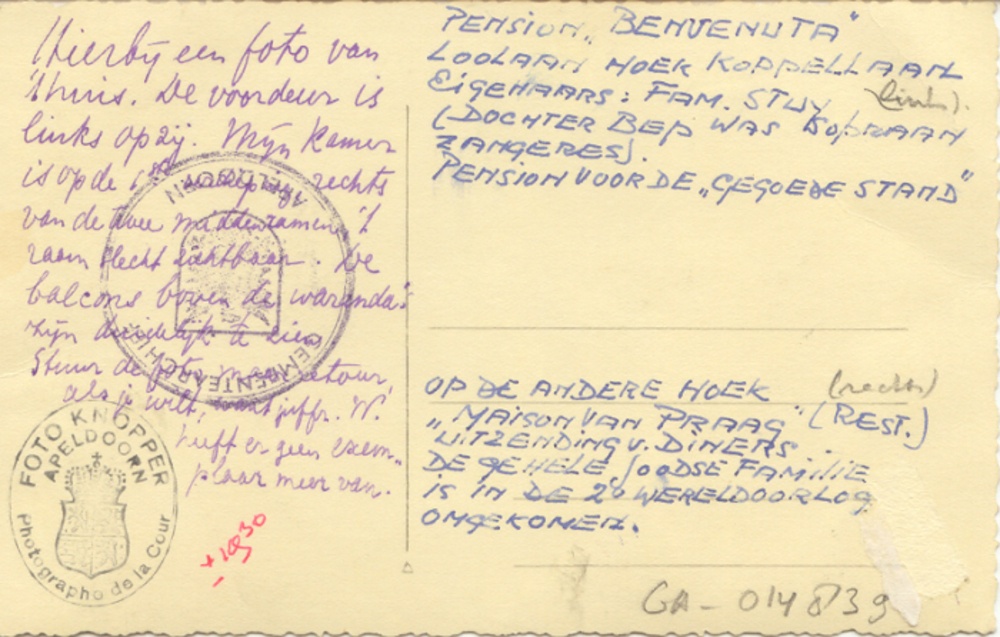 Hierbij een foto van
't huis. De voordeur is
links opzij. Mijn kamer
is op de 1ste rechts
van de twee middenramen. 't
raam slecht zichtbaar. De
balcons boven de waranda
zijn duidelijk te zien
Stuur de foto maar retour,
als je wilt, want jeffr. W.
heeft er geen exem-
plaar meer van.
APELDOORN
GEMEENTEARCHIEF
FOTO KNOPPER
APELDOORN
Photographe de la Cour
± 1930
PENSION „BENVENUTA"
LOOLAAN HOEK KOPPELLAAN
EIGENAARS: FAM. STUY (links).
(DOCHTER BEP WAS SOPRAAN
ZANGERES).
PENSION VOOR DE „GEGOEDE STAND"
OP DE ANDERE HOEK (rechts)
„MAISON VAN PRAAG" (REST.)
UITZENDING V. DINERS.
DE GEHELE JOODSE FAMILIE
IS IN DE 2e WERELDOORLOG
OMGEKOMEN.
GA - 014839